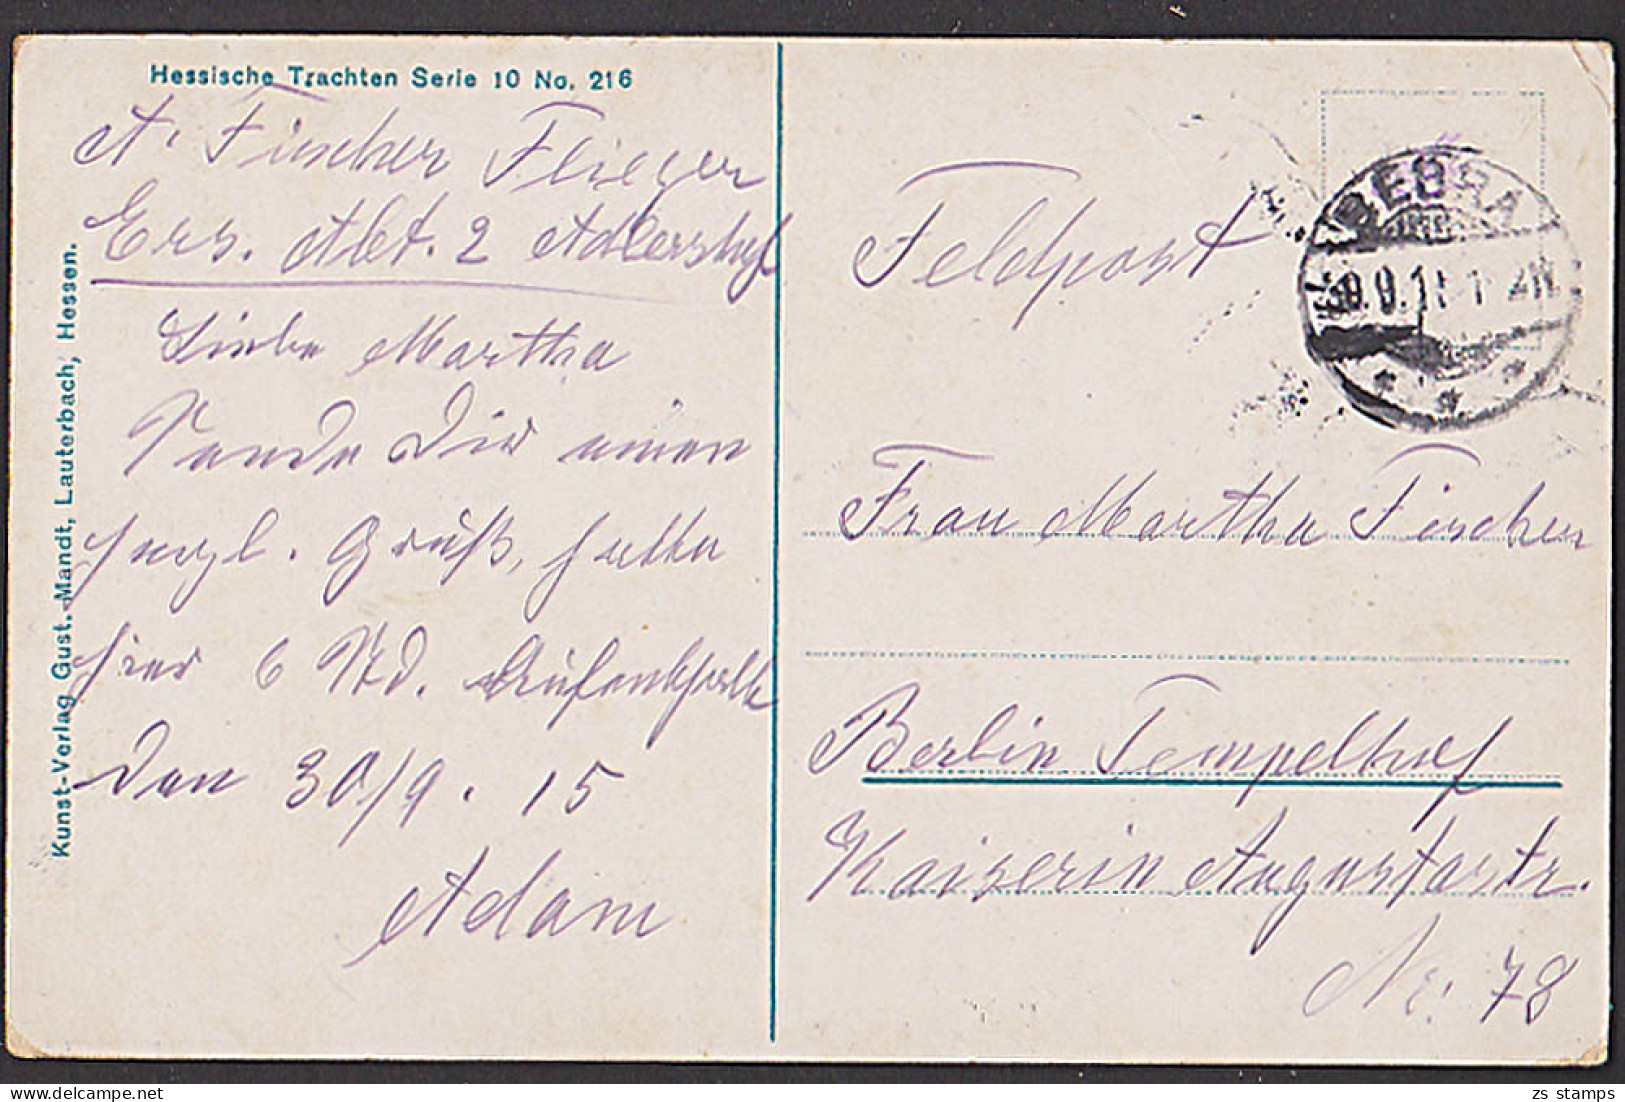 Hessische Trachten Serie 10 No. 216
A. Fischer Flieger
Ers. Abt. 2 Adlershof
Liebe Martha
Sende Dir einen
herzl. Gruß, hatte
hier 6 Std. Aufenthalt
den 30/9. 15
Adam
Kunst-Verlag Gust. Mandt, Lauterbach, Hessen.
Feldpost
BEBRA
Frau Martha Fischer
Berlin Tempelhof
Kaiserin Augustastr.
Nr: 78
zs stamps